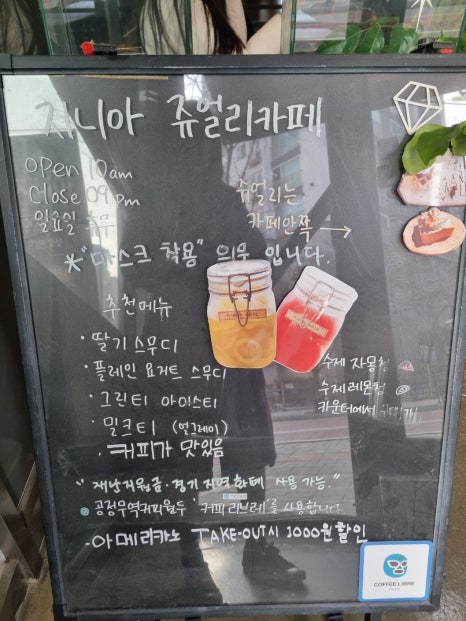 지니아 쥬얼리카페
open 10am
Close 09pm
일요일 휴무
쥬얼리는
카페안쪽 →
*"마스크 착용" 의무 입니다.
추천메뉴
· 딸기 스무디
· 플레인 요거트 스무디
· 그린티 아이스티
· 밀크티 (얼그레이)
· 커피가 맛있음
수제 자몽청
수제레몬청
카운터에서
"재난지원금·경기지역화폐 사용 가능."
공정무역커피원두 '커피 리브레'를 사용합니다
-아메리카노 TAKE-OUT시 1000원 할인
COFFEE LIBRE